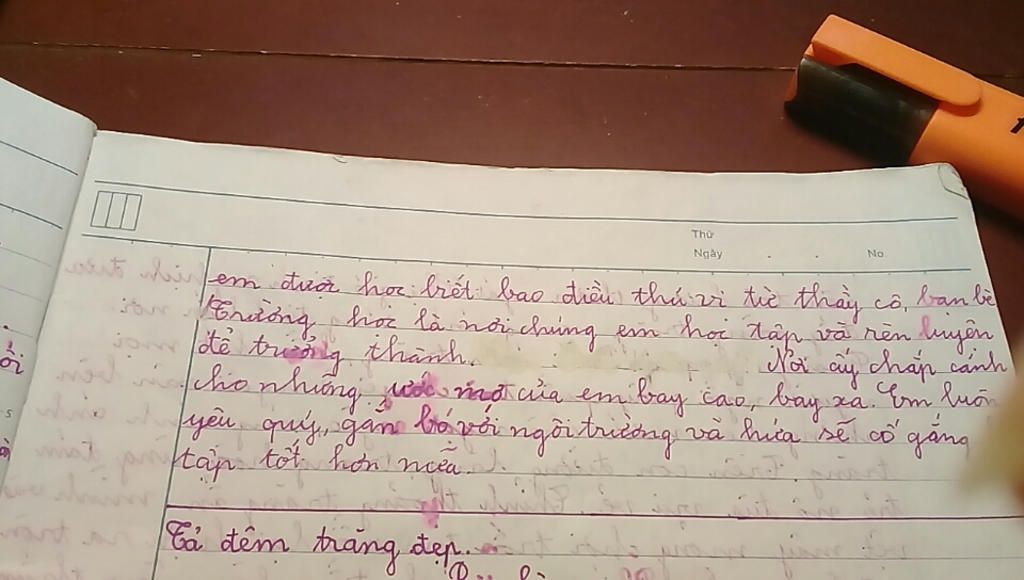 Thứ
Ngày . . No
em được học biết bao điều thú vị từ thầy cô, bạn bè
Trường học là nơi chúng em học tập và rèn luyện
để trưởng thành. Nơi ấy chắp cánh
cho những ước mơ của em bay cao, bay xa. Em luôn
yêu quý, gắn bó với ngôi trường và hứa sẽ cố gắng
tập tốt hơn nữa.
Tả đêm trăng đẹp.